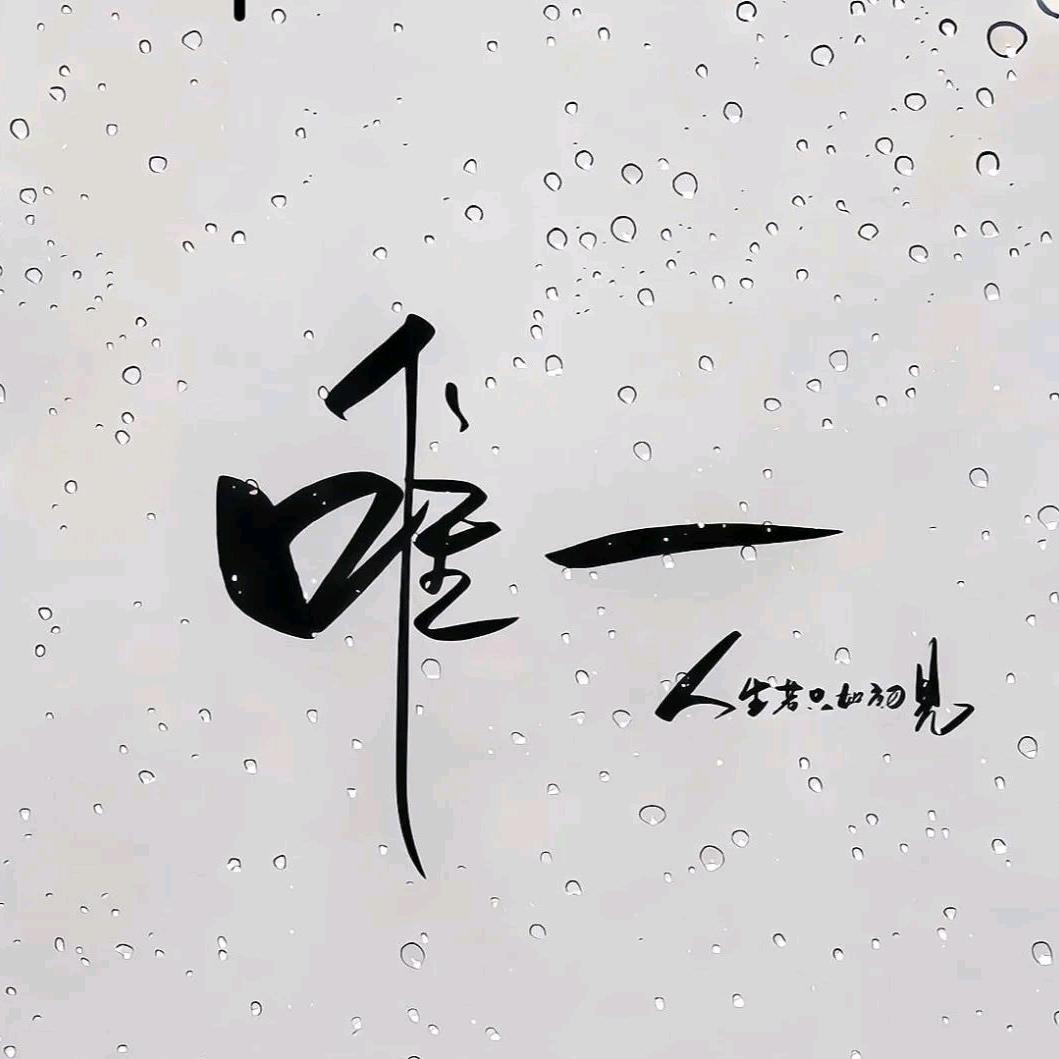 唯一
人生若只如初見